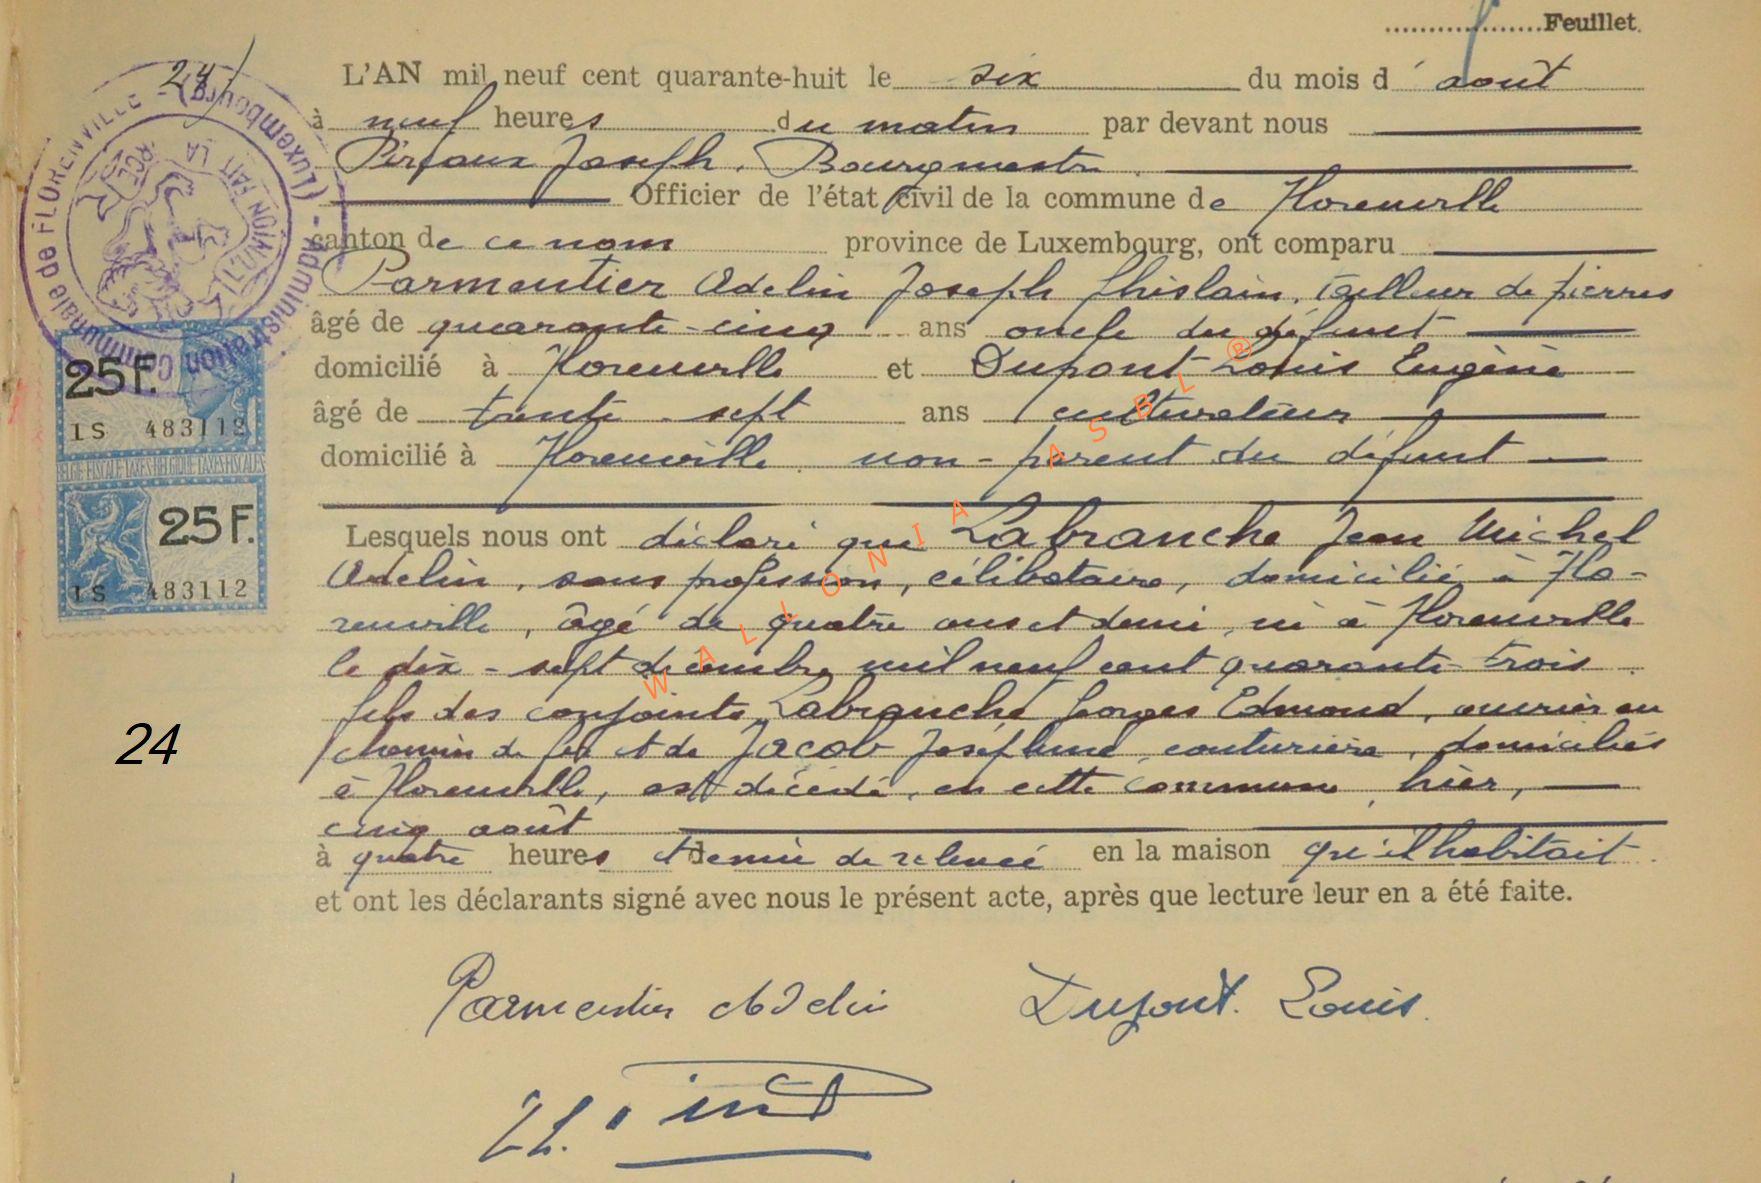 Feuillet.
24
L'AN mil neuf cent quarante-huit le six du mois d' août
à neuf heures du matin par devant nous
Joseph, Bourgmestre
Officier de l'état civil de la commune de Florenville
canton de ce nom province de Luxembourg, ont comparu
Parmentier Adelin Joseph Ghislain, tailleur de pierres
âgé de quarante-cinq ans oncle du défunt
domicilié à Florenville et Dupont Louis Eugène
âgé de trente-sept ans cultivateur
domicilié à Florenville non-parent du défunt
Lesquels nous ont déclaré que Labranche Jean Michel
Adelin, sans profession, célibataire, domicilié à Flo-
renville, âgé de quatre ans et demi, né à Florenville
le dix-sept décembre mil neuf cent quarante-trois
fils des conjoints Labranche Georges Edmond, ouvrier au
chemin de fer et de Jacob Joséphine, couturière, domiciliés
à Florenville, est décédé, en cette commune, hier,
cinq août
à quatre heures et demie de relevée en la maison qu'il habitait.
et ont les déclarants signé avec nous le présent acte, après que lecture leur en a été faite.
Parmentier Adelin Dupont. Louis.
Administration Communale de FLORENVILLE - (Luxembourg) -
L'UNION FAIT LA FORCE
25 F.
1S 483112
BELGIE-FISCALE TAXES-BELGIQUE-TAXES FISCALES
25 F.
1S 483112
24
WALLONIA ASBL ®